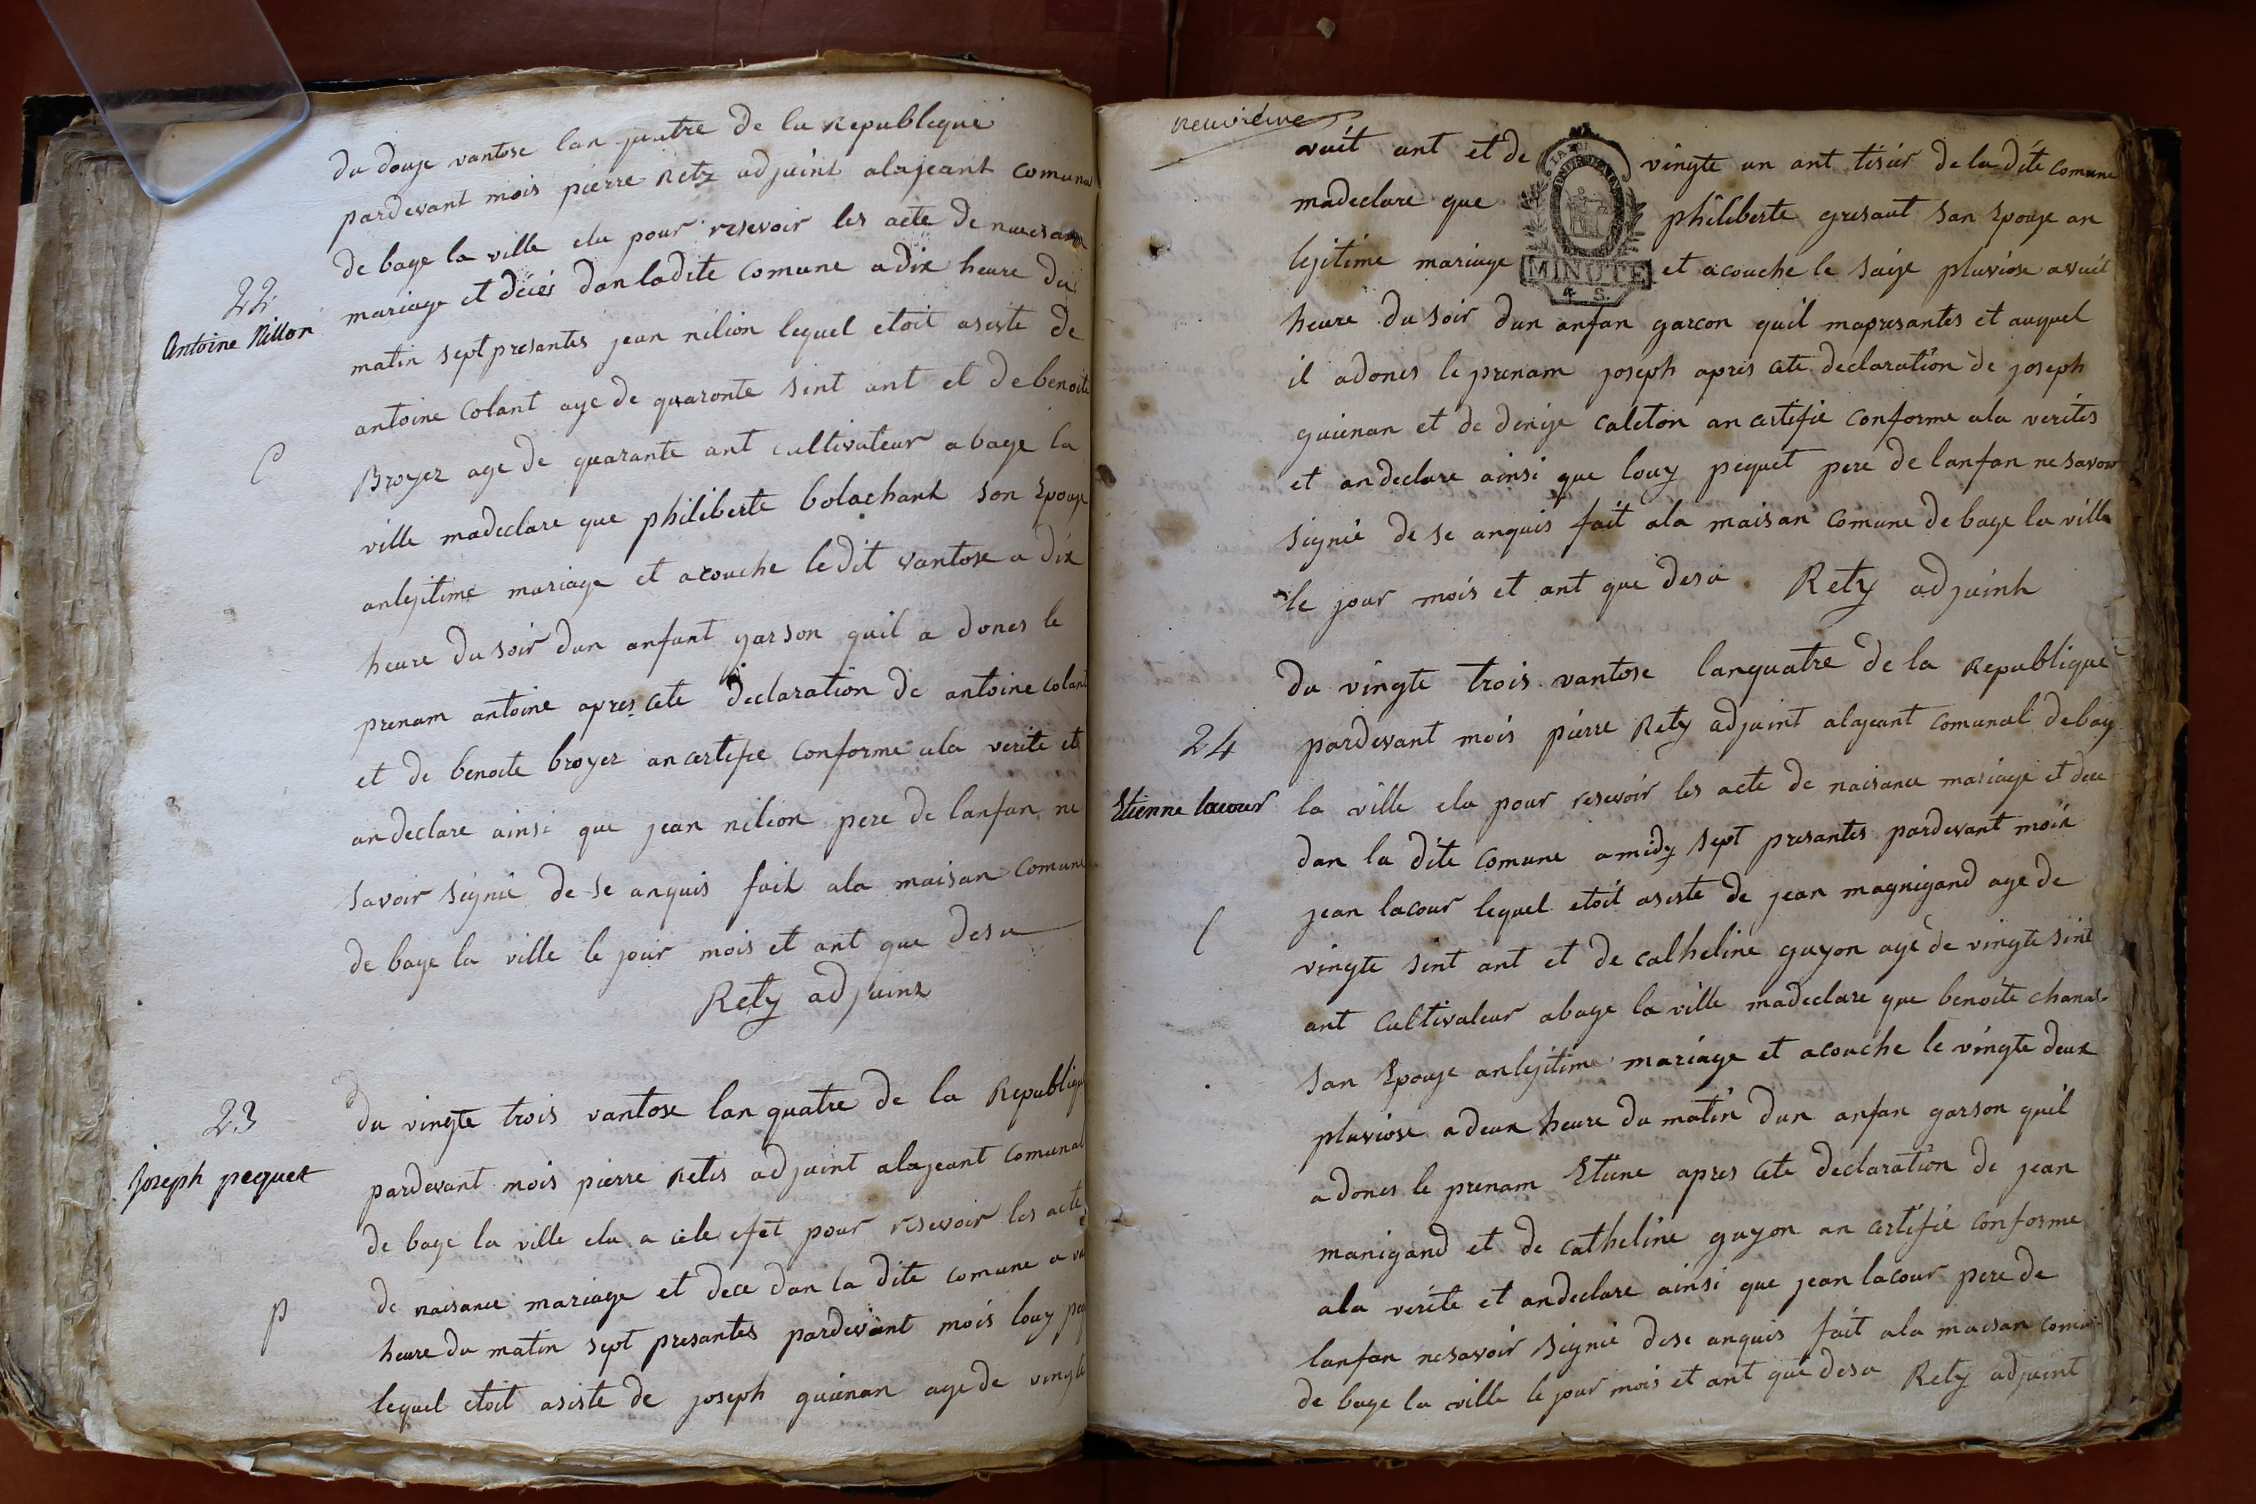 du douze vantose lan quatre de la Republique
pardevant mois pierre Retz adjuint alajeant comunal
de bage la ville elu pour resevoir les acte de naisan
22
mariage et décés dan ladite comune a dix heure du
Antoine Nillon
matin sept presantes jean nilion lequel etoit asiste de
antoine Colant age de quaronte sint ant et de benoite
C
Broyer age de quarante ant cultivateur a bage la
ville madeclare que philiberte bolachant son Epouse
anlejitime mariage et acouche ledit vantose a dix
heure du soir dun anfant garson quil a dones le
prenam antoine apres cete declaration de antoine colant
et de benoite broyer an certifie conforme ala verite et
andeclare ainsi que jean nilion pere de lanfan ne
savoir signié de se anquis fait ala maisan comune
de bage la ville le jour mois et ant que desu
Rety adjuint
23
du vingte trois vantose lan quatre de la Republique
Joseph pequet
pardevant mois pierre Retis adjuint alajeant comunal
de bage la ville elu a cele efet pour resevoir les acte
de naisance mariage et dece dan la dite comune a
p
heure du matin sept presantes pardevant mois louy
lequel etoit asiste de joseph guienan age de vingte
neuvieme
vuit ant et de vingte un ant tisier de la dite comune
madeclare que philiberte gresaut san Epouse an
lejitime mariage et acouche le saize pluviose a vuit
MINUTE
4 S.
heure du soir dun anfan garcon quil mapresantes et auquel
il adones le prenam joseph apres cete declaration de joseph
guienan et de denize caleton an certifie conforme ala verites
et andeclare ainsi que louy pequet pere de lanfan ne savoir
signié de se anquis fait ala maisan comune de bage la ville
le jour mois et ant que desu. Rety adjuint
du vingte trois vantose lanquatre de la Republique
24
pardevant mois pierre Rety adjuint alajeant comunal de bage
Etienne lacour
la ville elu pour resevoir les acte de naisance mariage et dece
dan la dite comune amidy sept presantes pardevant moix
jean lacour lequel etoit asiste de jean magnigand age de
C
vingte sint ant et de catheline guyon age de vingte sint
ant Cultivateur abage la ville madeclare que benoite chanal
san Epouse anlejitime mariage et acouche le vingte deux
pluviose a deux heure du matin dun anfan garson quil
a dones le prenam Etiene apres cete declaration de jean
manigand et de catheline guyon an certifie conforme
ala verite et andeclare ainsi que jean lacour pere de
lanfan nesavoir signié dese anquis fait ala maisan comune
de bage la ville le jour mois et ant que desu Rety adjuint